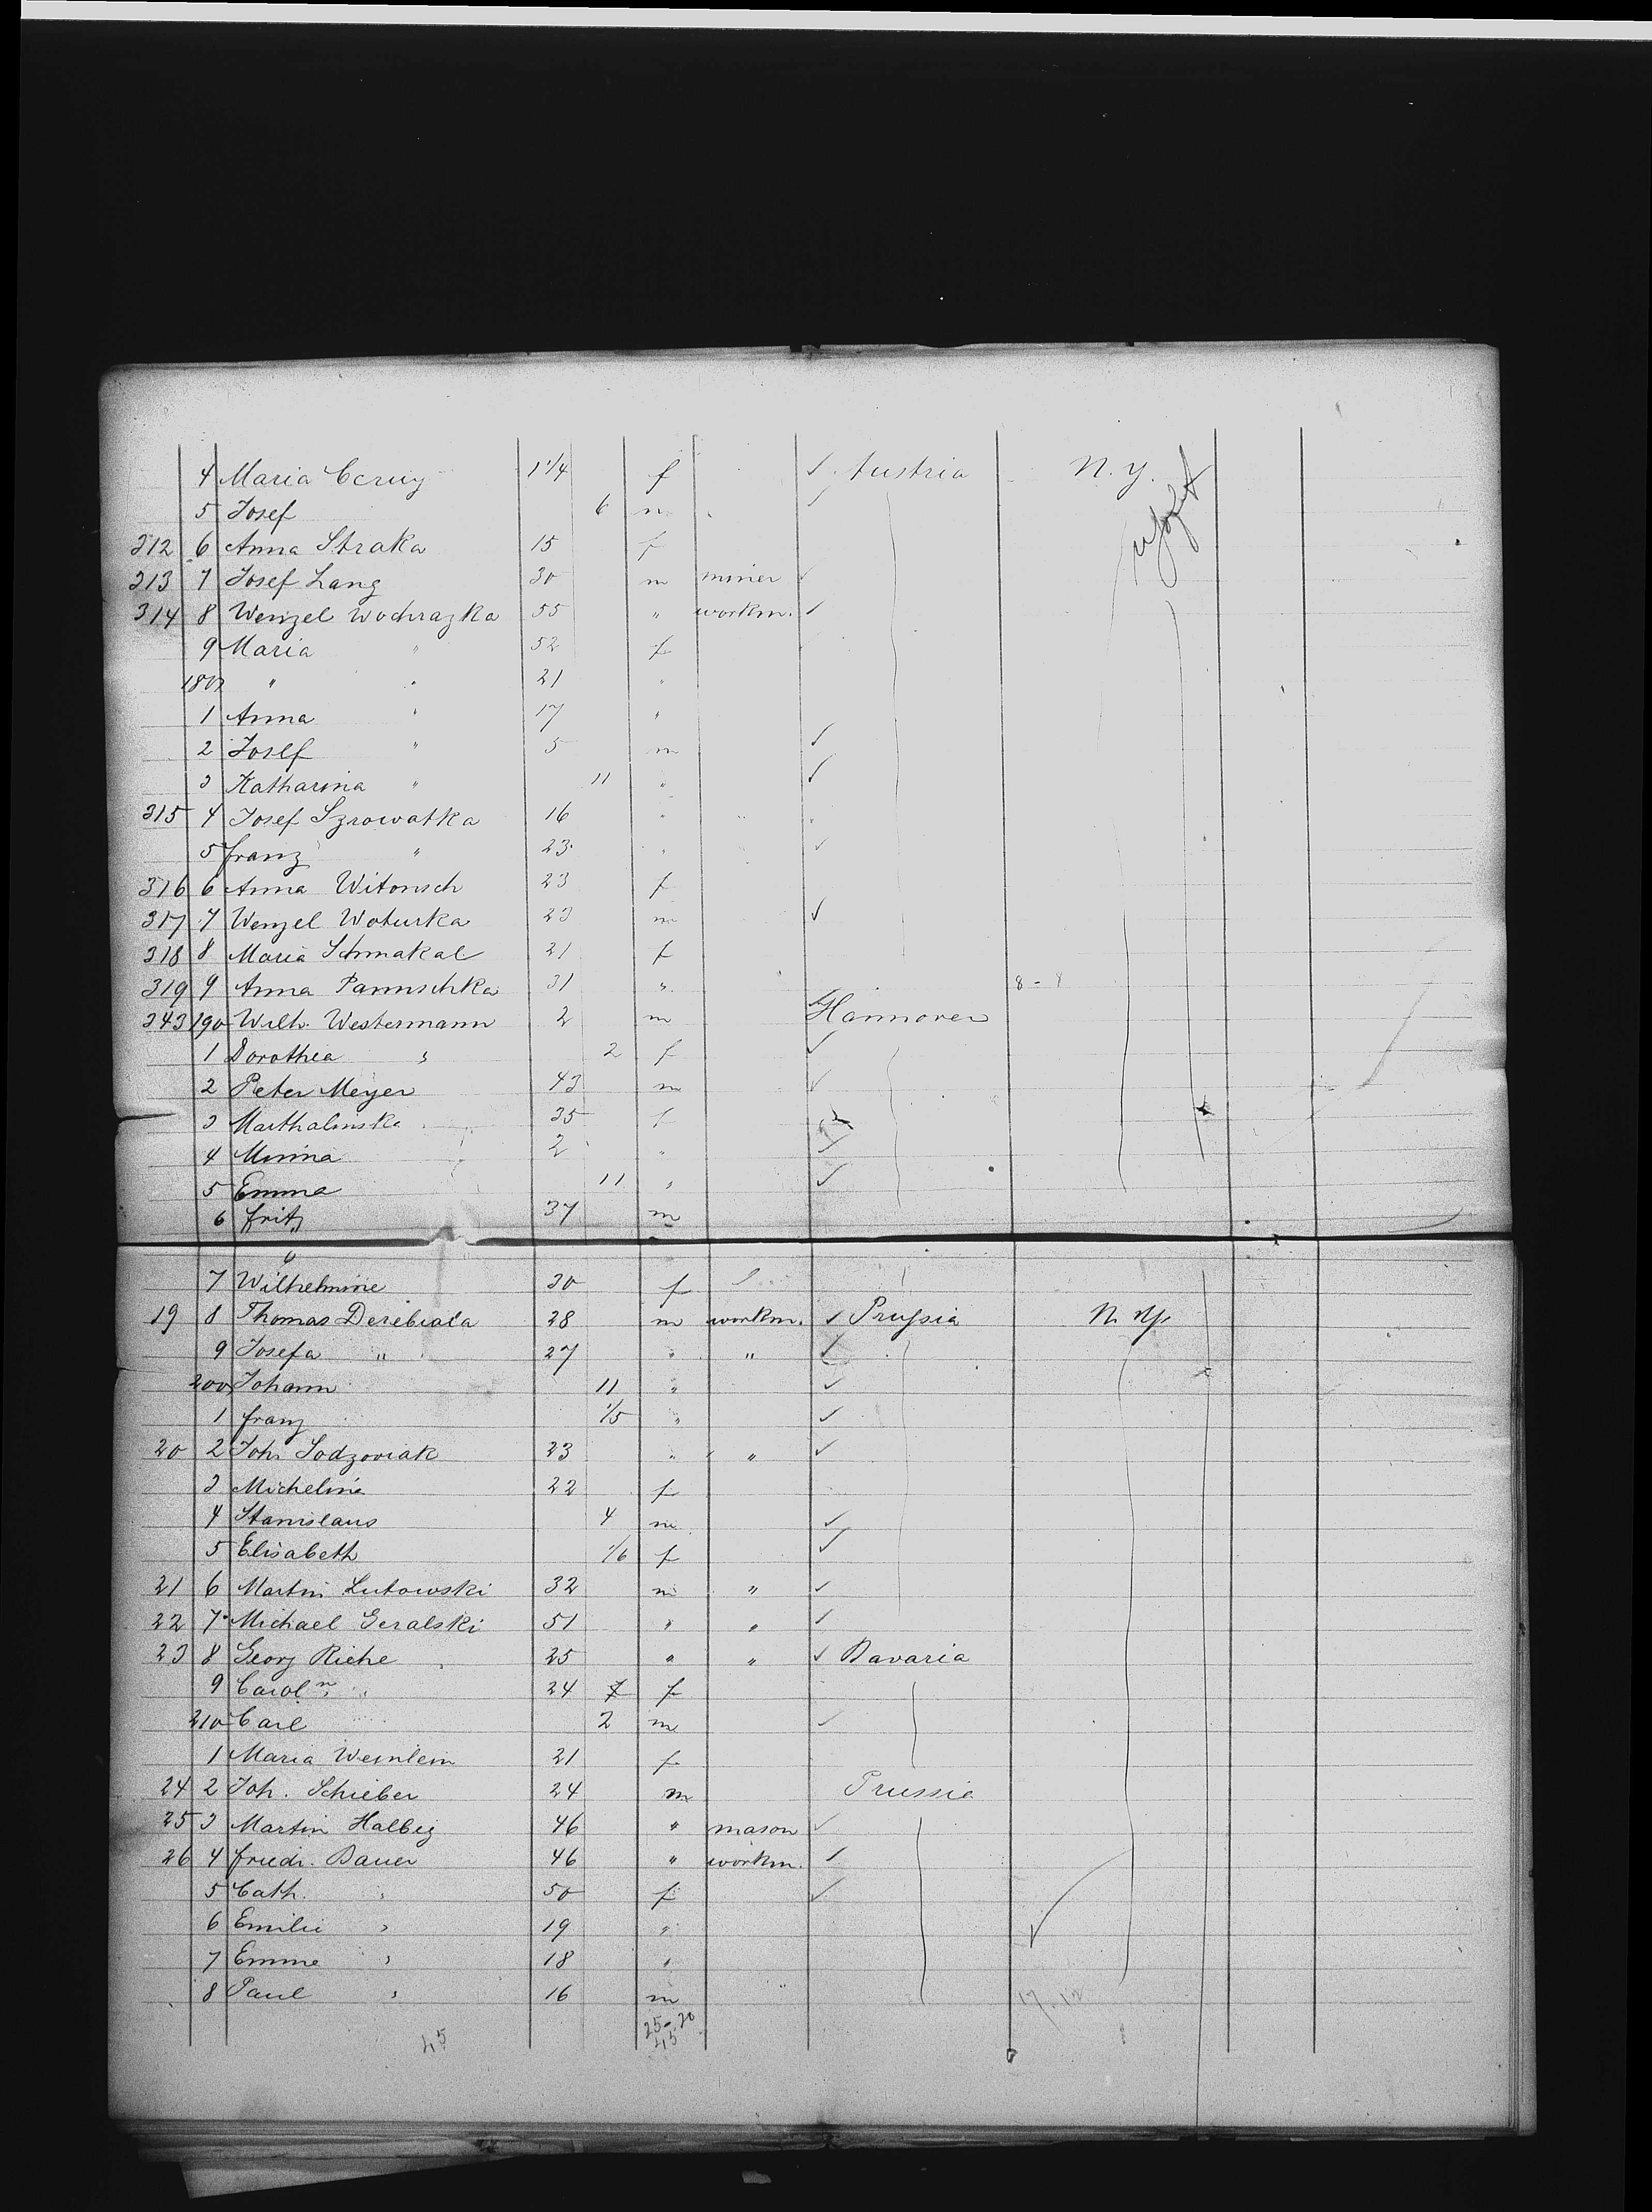 4 Maria Cerny 1 1/4 f ✓ Austria N.Y.
5 Josef 6 m ✓
312 6 Anna Straka 15 f
313 7 Josef Lang 30 m miner ✓
314 8 Wenzel Wochrazka 55 " workm. ✓
9 Maria " 52 f
180 " " 21 "
1 Anna " 17 "
2 Josef " 5 m ✓
3 Katharina " 11 " ✓
315 4 Josef Szrowatka 16 " "
5 Franz " 23 " ✓
316 6 Anna Witonsch 23 f
317 7 Wenzel Woturka 23 m ✓
318 8 Maria Schmakal 21 f
319 9 Anna Pannschka 31 " 8 - 8
343 190 Wilh. Westermann 2 m ✓ Hannover
1 Dorothea " 2 f ✓
2 Peter Meyer 43 m ✓
3 35 f
4 Minna 2 " ✓
5 Emma 11 " ✓
6 Fritz 37 m
7 Wilhelmine 30 f
19 8 Thomas Derebiala 28 m workm. ✓ Prussia N.Y.
9 Josefa " 27 " " ✓
200 Johann 11 " ✓
1 Franz 1/5 " ✓
20 2 Joh. Sodzoviak 23 " " ✓
3 Micheline 22 f
4 Stanislaus 4 m ✓
5 Elisabeth 1/6 f ✓
21 6 Martin Lutowski 32 m " ✓
22 7 Michael Geralski 51 " " ✓
23 8 Georg Riehe 25 " " ✓ Bavaria
9 Carol " 24 f
210 Carl 2 m ✓
1 Maria Weinlein 21 f
24 2 Joh. Schieber 24 m Prussia
25 3 Martin Halbig 46 " mason ✓
26 4 Friedr. Bauer 46 " workm. ✓
5 Cath. " 50 f ✓
6 Emilie " 19 "
7 Emma " 18 "
8 Paul " 16 m " 17.12
25-20
45 45